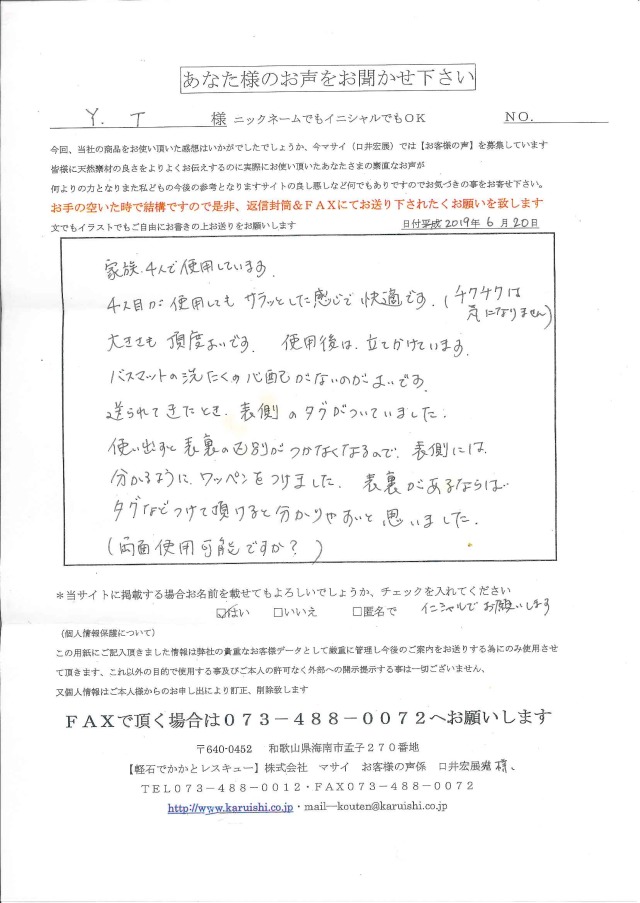 あなた様のお声をお聞かせ下さい
Y. T 様 ニックネームでもイニシャルでもOK NO.
今回、当社の商品をお使い頂いた感想はいかがでしたでしょうか、今マサイ（口井宏展）では【お客様の声】を募集しています
皆様に天然素材の良さをよりよくお伝えするのに実際にお使い頂いたあなたさまの素直なお声が
何よりの力となりまた私どもの今後の参考となりますサイトの良し悪しなど何でもありですのでお気づきの事をお寄せ下さい。
お手の空いた時で結構ですので是非、返信封筒＆ＦＡＸにてお送り下されたくお願いを致します
文でもイラストでもご自由にお書きの上お送りをお願いします 日付平成2019年6月20日
家族4人で使用しています。
4人目が使用してもサラッとした感じで快適です。（チクチクは
気になりません）
大きさも頂度よいです。 使用後は、立てかけています。
バスマットの洗たくの心配がないのがよいです。
送られてきたとき、表側のタグがついていました。
使い出すと表裏の区別がつかなくなるので、表側には
分かるように、ワッペンをつけました。表裏があるならば
タグなどつけて頂けると分かりやすいと思いました。
（両面使用可能ですか？）
＊当サイトに掲載する場合お名前を載せてもよろしいでしょうか、チェックを入れてください
☑はい □いいえ □匿名で イニシャルでお願いします
（個人情報保護について）
この用紙にご記入頂きました情報は弊社の貴重なお客様データとして厳重に管理し今後のご案内をお送りする為にのみ使用させ
て頂きます、これ以外の目的で使用する事及びご本人の許可なく外部への開示提示する事は一切ございません、
又個人情報はご本人様からのお申し出により訂正、削除致します
ＦＡＸで頂く場合は０７３－４８８－００７２へお願いします
〒640-0452 和歌山県海南市孟子２７０番地
【軽石でかかとレスキュー】株式会社 マサイ お客様の声係 口井宏展 様、
ＴＥＬ０７３－４８８－００１２・ＦＡＸ０７３－４８８－００７２
http://www.karuishi.co.jp・mail―kouten@karuishi.co.jp